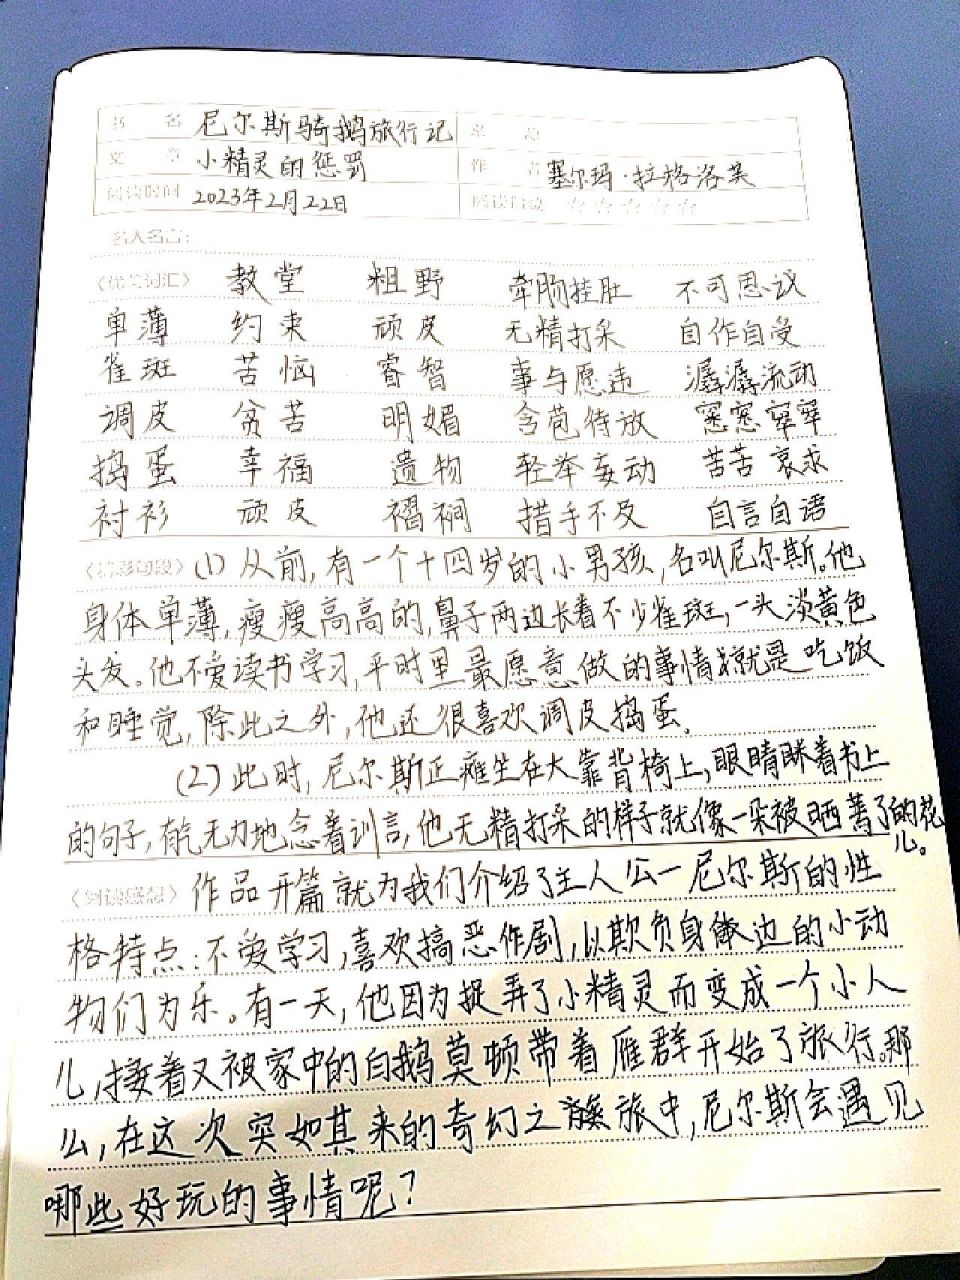 书名 尼尔斯骑鹅旅行记
文章 小精灵的惩罚 作者 塞尔玛·拉格洛芙
阅读时间 2023年2月22日 阅读自励 ☆☆☆☆☆
名人名言:
《优美词汇》 教堂 粗野 牵肠挂肚 不可思议
单薄 约束 顽皮 无精打采 自作自受
雀斑 苦恼 睿智 事与愿违 潺潺流动
调皮 贫苦 明媚 含苞待放 窸窸窣窣
捣蛋 幸福 遗物 轻举妄动 苦苦哀求
衬衫 顽皮 褶裥 措手不及 自言自语
《精彩句段》(1)从前,有一个十四岁的小男孩,名叫尼尔斯。他
身体单薄,瘦瘦高高的,鼻子两边长着不少雀斑,一头淡黄色
头发。他不爱读书学习,平时里最愿意做的事情就是吃饭
和睡觉,除此之外,他还很喜欢调皮捣蛋.
(2)此时,尼尔斯正瘫坐在大靠背椅上,眼睛眯着书上
的句子,有气无力地念着训言,他无精打采的样子就像一朵被晒蔫了的花
儿。
《阅读感想》作品开篇就为我们介绍了主人公—尼尔斯的性
格特点:不爱学习,喜欢搞恶作剧,以欺负身边的小动
物们为乐。有一天,他因为捉弄了小精灵而变成一个小人
儿,接着又被家中的白鹅莫顿带着雁群开始了旅行。那
么,在这次突如其来的奇幻之旅中,尼尔斯会遇见
哪些好玩的事情呢?